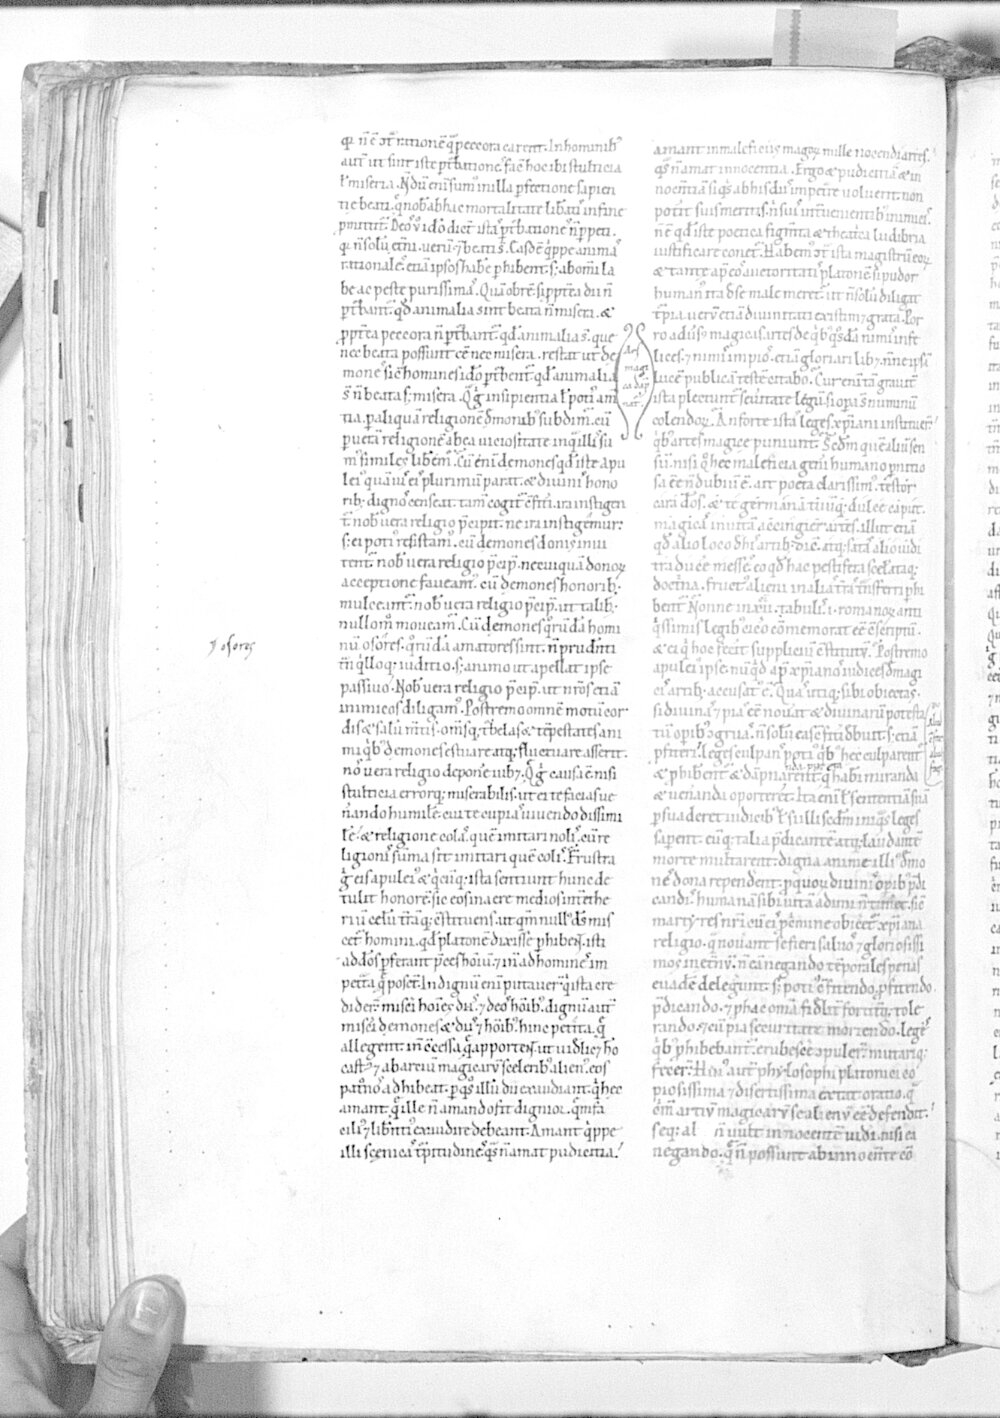 qꝫ n̄ ē ↄt̄ rationē q̄ pecora carent. In hominib᷒
aut̄ ut sint iste ꝑt̄bationeſ facit hoc ł stulticia
ł miseria. N̄dū eni᷒ sum᷒ in illa ꝑfectione sapien
tie beati. q̄ nob᷒ ab hac mortalitate libatiſ in fine
ꝓmittit᷒. Deoſ ideo dic̄t istaſ ꝑt̄bationeſ n̄ ꝑpeti.
qꝫ n̄ solū et̄ni. uerū ⁊ beati s̄. Easdē q̄ppe animaſ
rationaleſ etiā ipsoſ habe ꝑhibent. sꝫ ab om̄i la
be ac peste purissimaſ. Quā obrē si ꝓpt̄ea dii n̄
ꝑt̄bant᷒. qd̄ animalia sint beata n̄ misera. &
ꝓpt̄ea pecora n̄ ꝑt̄bant᷒. qd̄ animalia s̄. que
nec beata possunt eē nec misera. restat ut de
moneſ sic̄ homineſ ideo ꝑt̄bent᷒. qd̄ animalia
s̄ n̄ beata sꝫ misera. Q̄ g̊ insipientia ł potiꝰ am̄
tia. ꝑ aliquā religionē demonib᷒ subdimꝰ. cū
ꝑ uerā religionē ab ea uiciositate in q̄ illiſ su
mꝰ similes liberemꝰ. Cū eni᷒ demoneſ qd̄ iste apu
leiꝰ quāuiſ eiſ plurimū parcat. & diuiniſ hono
rib᷒ dignoſ censeat. tam̄ cogit᷒ c̄fit̄i. ira instigen
t᷒. nob᷒ uera religio p̄cipit. ne ira instigemur.
sꝫ ei potiꝰ resistamꝰ. cū demoneſ donis inui
tent᷒. nob᷒ uera religio p̄cip̄. ne cuiquā donoꝝ
acceptione faueamꝰ. cū demoneſ honorib᷒
mulceant᷒. nob᷒ uera religio p̄cip̄. ut talib᷒
nullom̊ moueamꝰ. Cū demoneſ q̊rundā homi
nū osoreſ. q̊rundā amatoreſ sint. n̄ prudn̄ti
t̄nq̄lloqꝫ iuditio. sꝫ animo ut apellat ipse
passiuo. Nob᷒ uera religio p̄cip̄. ut nr̄oſ etiā
inimicos diligamꝰ. Postremo omnē motū cor
dis & salū mn̄tis. om̄sqꝫ t᷒belas & tēpestates ani
mi q̄b᷒ demones estuare atqꝫ fluctuare asserit.
noſ uera religio deponere iub&. Q̄ g̊ causa ē nisi
stulticia errorqꝫ miserabilis. ut ei te facias ue
n̄ando humilē. cui te cupiaſ uiuendo dissimi
lē. & religione colaſ quē imitari noliſ. cū re
ligioniſ sūma sit imitari quē coliſ. Frustra
g̊ eiſ apuleiꝰ & q̄cūqꝫ ista sentiunt hunc de
tulit honorē. sic eoſ in aere medioſ int̄ ethe
riū celū t̄rāqꝫ c̄stituenſ. ut qm̄ nullꝰ dꝰ mis
cet᷒ homini. qd̄ platonē dixisse ꝑhibenꝫ. isti
ad dōſ ꝑferant p̄ces hōiū. ⁊ in̄ ad homineſ im
pet̄ta q̄ poscer̄. Indignū eni᷒ putauer̄ q̄ ista cre
dider̄. misceri hōies diis. ⁊ deoſ hōib᷒. dignū aut̄
misceri demones & diis ⁊ hōib᷒. hinc petita q̄
allegent. in̄ c̄cessa q̄ apportent. ut uidl̄iꝫ hō
castꝰ ⁊ ab artiū magicaꝝ sceleribꝰ alienꝰ. eos
patronoſ adhibeat. ꝑ qos illū dii exaudiant. q̄ hec
amant. q̄ ille n̄ amando fit dignior. qm̄ fa
ciliꝰ ⁊ libn̄tiꝰ exaudire debeant. Amant q̄ppe
illi scenicaſ t᷒pitudineſ. q̄s n̄ amat pudicitia.
amant in maleficiis magoꝝ mille nocendi arteſ.
q̄s n̄ amat innocentia. Ergo & pudicitia & in
nocentia siq̄d ab his diis impetrare uoluerit. non
potit suis meritis. n̄ suiſ int̄uenientib᷒ inimicis.
n̄ ē qd̄ iste poetica figm̄ta & theat̄ca ludibria
iustificare conet᷒. Habemꝰ ↄt̄ ista magistrū eoꝝ
& tante ap̄ eoſ auctoritatiſ platonē. si pudor
humanꝰ ita d̄ se male meret᷒. ut n̄ solū diligat
t᷒pia uerū etiā diuinitati existim& grata. Por
ro aduersꝰ magicaſ artes de q̄b᷒ q̄sdā nimiꝰ infe
liceſ. ⁊ nimiꝰ impioſ etiā gloriari lib&. n̄ne ipsā
lucē publicā testē citabo. Cur eni᷒ tā grauit᷒
ista plectunt᷒ seueritate legū. si opa s̄ numinū
colendoꝝ. An forte istaſ legeſ xp̄iani instituer̄.
q̄b᷒ artes magice puniunt᷒. Scd̄m quē aliū sen
sū. nisi qd̄ hec maleficia gn̄i humano ꝑnitio
sa eē n̄ dubiū ē. ait poeta clarissimꝰ. testor
cara dōſ. & te germana tuūqꝫ dulce caput.
magicaſ inuitā accingier arteſ. illut etiā
qd̄ alio loco d̄ hiſ artib᷒ dic̄. atqꝫ sataſ alio uidi
traducere messeſ. eo qd̄ hac pestifera scelerataqꝫ
doctͥna. fruct᷒ alieni in aliaſ t̄raſ t̄nsferri ꝑhi
bent᷒. Nonne in xii. tabuliſ. i. romanoꝝ anti
q̄ssimis legib᷒ cicero cōmemorat eē c̄scriptū.
& ei q̊ hoc fec̄it suppliciū c̄stitutū. Postremo
apuleiꝰ ipse. nūqd̄ ap̄ xp̄ianoſ iudices d̄ magi
ciſ artib᷒ accusatꝰ ē. Quaſ utiqꝫ sibi obiectas.
si diuinaſ ⁊ piaſ eē nouat & diuinarū potesta
tū opib᷒ ↄgruaſ. n̄ solū eas c̄fit̄i debuit. sꝫ etiā
ꝓfit̄eri. leges culpanſ potiꝰ q̄b᷒ hec culparent᷒
& ꝑhibent᷒ & dāpnarent᷒. q̄ haberi miranda
& uen̄anda oporteret. Ita eni᷒ ł sententiā suā
ꝑsuaderet iudicib᷒. ł si illi scd̄m iniq̄s leges
saperent. eūqꝫ talia p̄dicantē atqꝫ laudantē
morte multarent. digna anime illiꝰ demo
neſ dona rependerent. ꝑ quoꝝ diuiniſ opib᷒ p̄di
candiſ humanā sibi uitā adimi n̄ timeret. sic̄
martyres nr̄i cū eiſ ꝑ c̄mine obiceret᷒ xp̄iana
religio. q̄ nouerant se fieri saluoſ ⁊ gloriosissi
mos in et̄nū. n̄ eā negando tēporaleſ penas
euadere delegerunt. sꝫ potiꝰ c̄fitendo. ꝓfitendo.
p̄dicando. ⁊ ꝓ hac om̄ia fidelit᷒ fortit᷒qꝫ tole
rando. & cū pia securitate moriendo. legeſ
q̄b᷒ ꝑhibebant᷒. erubescere ↄpuler̄. mutariqꝫ
fecer̄. Huiꝰ aut̄ phylosophi platonici co
piosissima ⁊ disertissima extat oratio. q̄
c̄mē artiū magicarū se alienū eē defendit.
seqꝫ al n̄ uult innocentē uideri. nisi ea
negando. q̄ n̄ possunt ab innocente cō
Ars
magi
ca dāp
nat᷒
⁊ osores